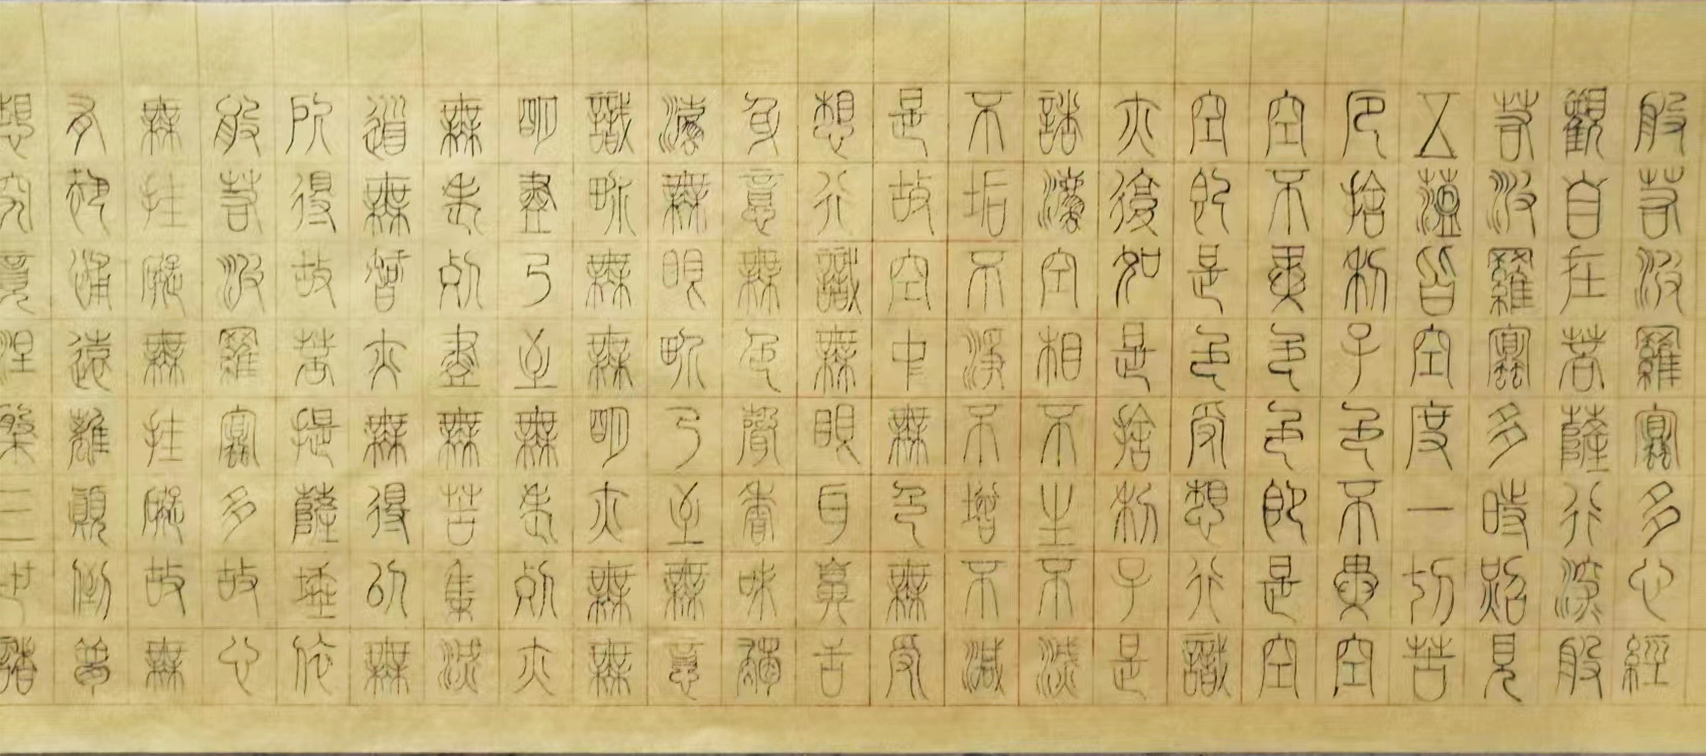 般若波羅蜜多心經
觀自在菩薩行深般
若波羅蜜多時照見
五蘊皆空度一切苦
厄捨利子色不異空
空不異色色即是空
空即是色受想行識
亦復如是捨利子是
諸法空相不生不滅
不垢不淨不增不減
是故空中無色無受
想行識無眼耳鼻舌
身意無色聲香味觸
法無眼界乃至無意
識界無無明亦無無
明盡乃至無老死亦
無老死盡無苦集滅
道無智亦無得以無
所得故菩提薩埵依
般若波羅蜜多故心
無挂礙無挂礙故無
有恐怖遠離顛倒夢
想究竟涅槃三世諸